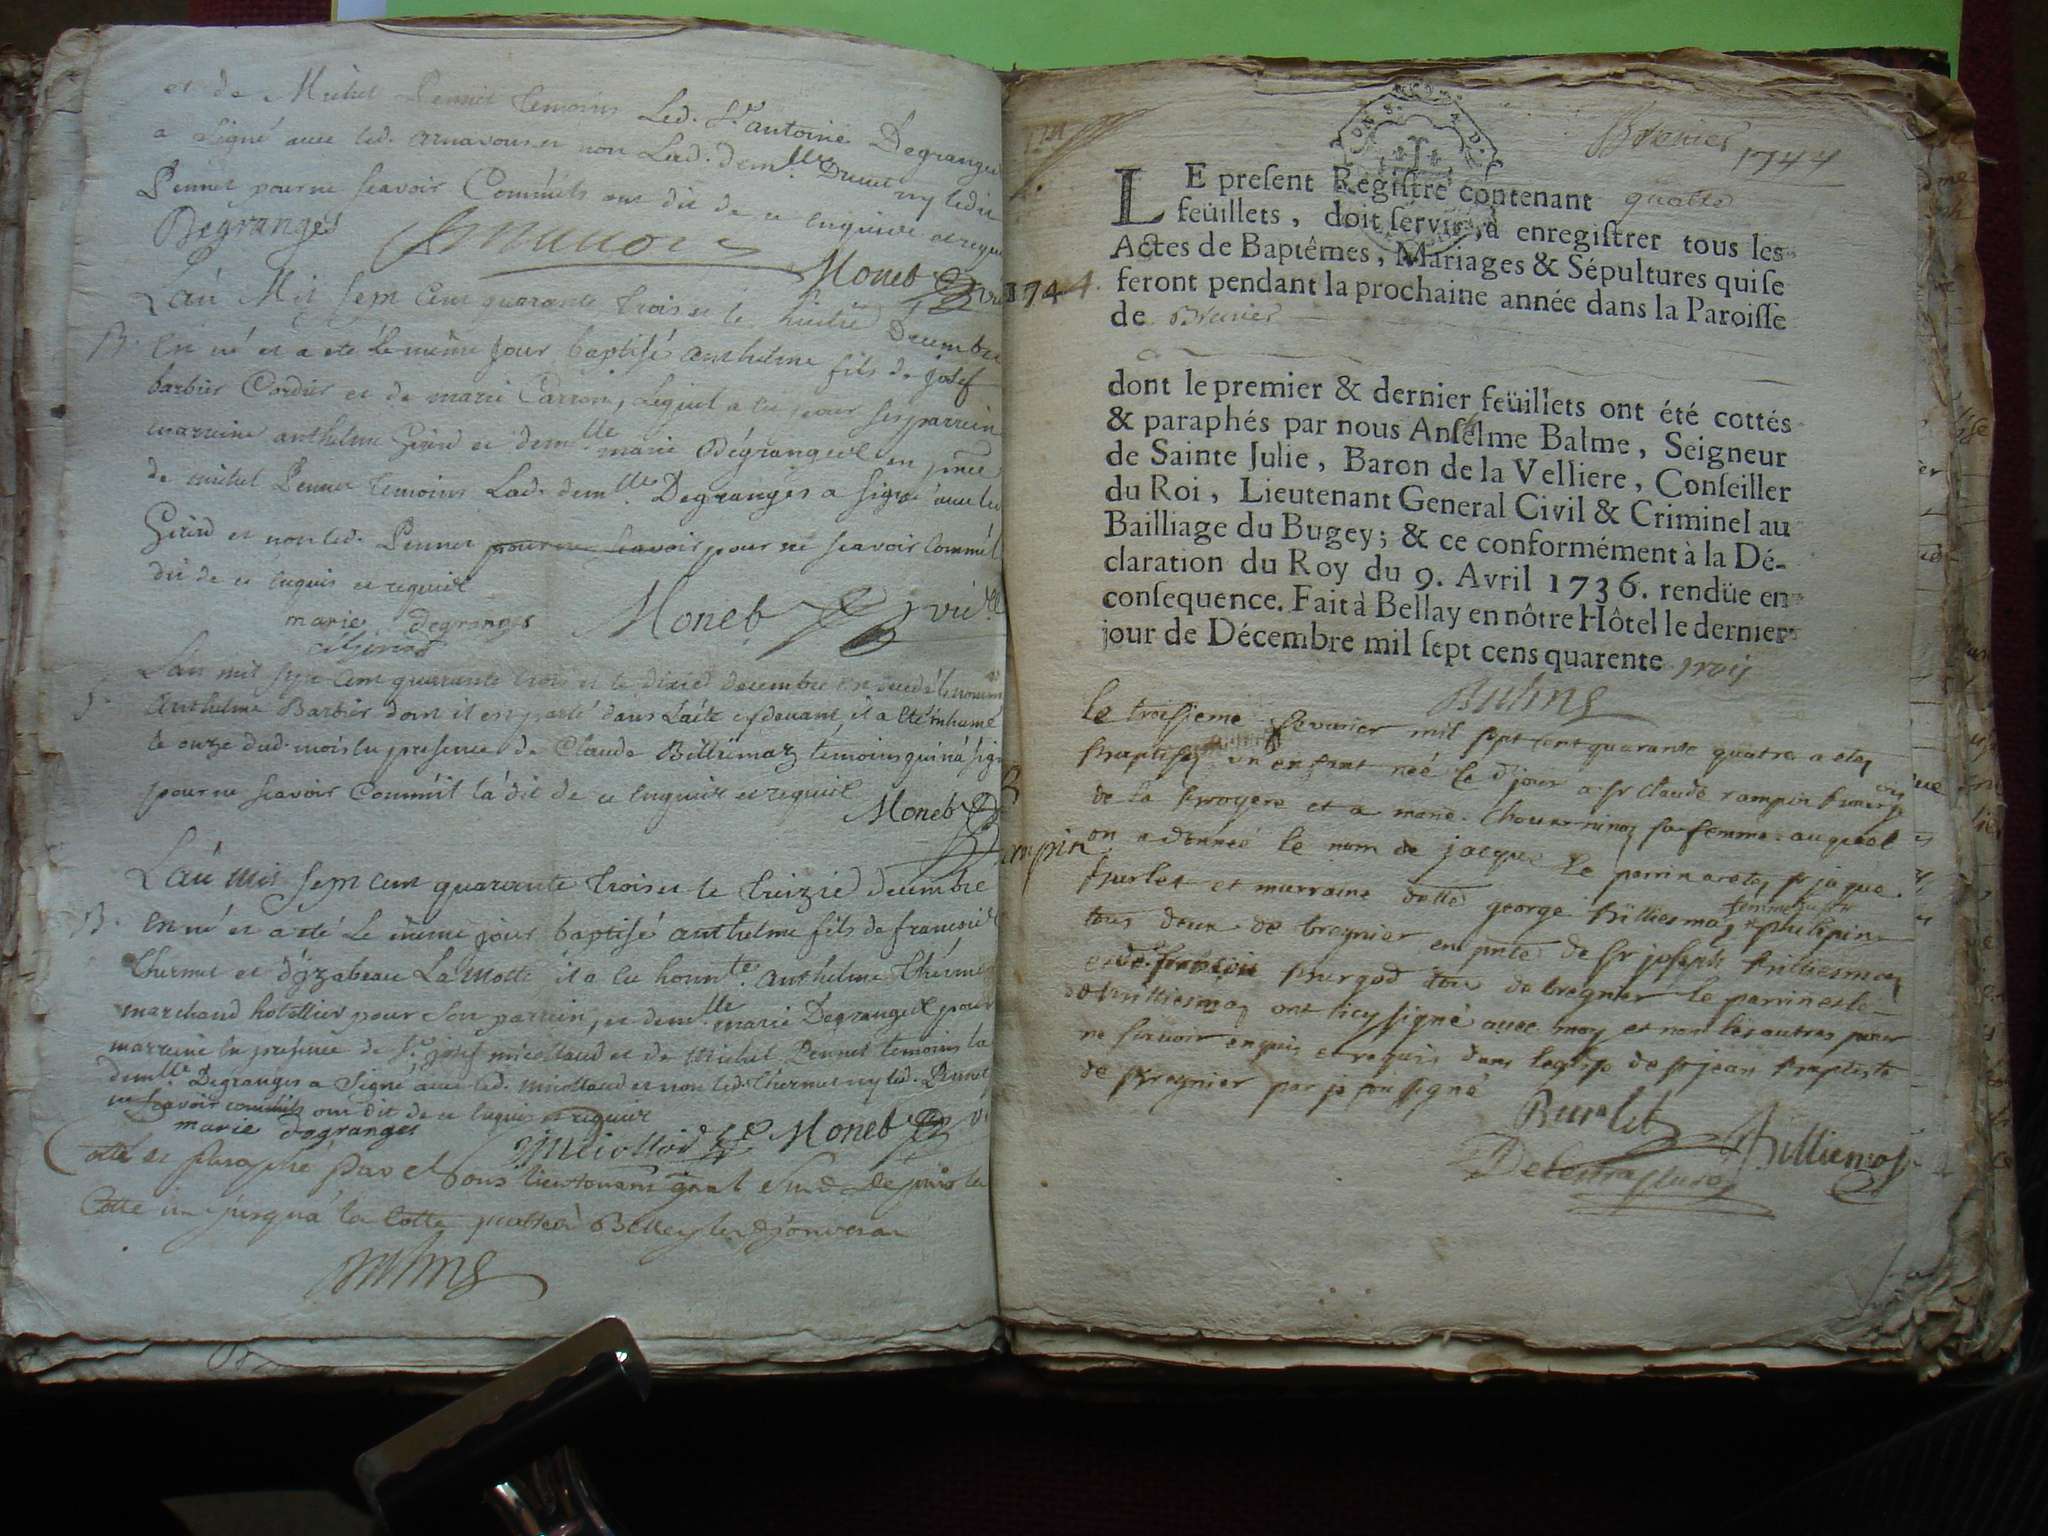 et de Michel Pennet temoins Led. Sr. antoine Degranges
a signé avec led. arnavon et non Lad. demlle Ducret ny ledit
Pennet pour ne scavoir Comm'ils ont dit de ce enquis et requis
Degranges
Moneb vic
Lan Mil sept Cent quarante trois et le huitie Decembre
B. en né et a été le même jour baptisé anthelme fils de josef
barbier Cordier et de marie Carron, Lequel a eu pour ses parrein
marreine anthelme Girod et demlle marie Degranges en pnce
de michel Pennet temoins Lad. demlle Degranges a signé avec led
Girod et non led. Pennet pour ne scavoir pour ne scavoir Comm'il
dit de ce enquis et requis
marie degranges Moneb vic
a Girod
Lan mil sept Cent quarante trois et le dixie decembre en decedé le nommé
S. Anthelme Barbier dont il est parlé dans L'acte cy devant, il a été inhumé
le onze dud. mois en presence de Claude Billiemaz temoins qui n'a signé
pour ne scavoir Comm'il l'a dit de ce enquis et requis
Moneb
Lan Mil sept cent quarante trois et le treizie decembre
B. en né et a été Le même jour baptisé anthelme fils de francois
Thermet et d'yzabeau La Motte, il a eu honnte. anthelme Thermet
marchand hotellier pour son parrein, et demlle marie Degranges pour
marreine en presence de Sr. josef micollaud et de Michel Pennet temoins la
demlle Degranges a signé avec led. micollaud et non led. Thermet ny led. Pennet
ne scavoir comm'ils ont dit de ce enquis et requis
marie degranges Moneb vi
Cotté et paraphé par Nous lieutenant gnal depuis la
Cotte un jusqu'à la cotte quatre à Belley
Balme
Brenier
1744
LE preſent Regiſtre contenant quatre
feüillets, doit ſervir à enregiſtrer tous les
Actes de Baptêmes, Mariages & Sépultures qui ſe
1744. feront pendant la prochaine année dans la Paroiſſe
de Brenier
dont le premier & dernier feüillets ont été cottés
& paraphés par nous Anſelme Balme, Seigneur
de Sainte Julie, Baron de la Velliere, Conſeiller
du Roi, Lieutenant General Civil & Criminel au
Bailliage du Bugey; & ce conformément à la Dé-
claration du Roy du 9. Avril 1736. rendüe en
conſequence. Fait à Bellay en nôtre Hôtel le dernier
jour de Décembre mil ſept cens quarente trois
Balme
le troisieme fevrier mil sept cent quarante quatre a etez
Baptisez un enfant neé le d jour a sr claude rampin
de la Bruyere et a marie sa femme. auquel
on a donneé le nom de jacque le parrin a etez sr jaque
Burlet et marraine dette george Billiemaz philipin
tous deux de bregnier en pnce de sr joseph billiemaz
et de francois Burgod tous de bregnier le parrin et le
d Billiemaz ont icy signé avec moy et non les autres pour
ne scavoir enquis et requis dans leglise de st jean baptiste
de Bregnier par je sousigné
Burlet
Billiemaz